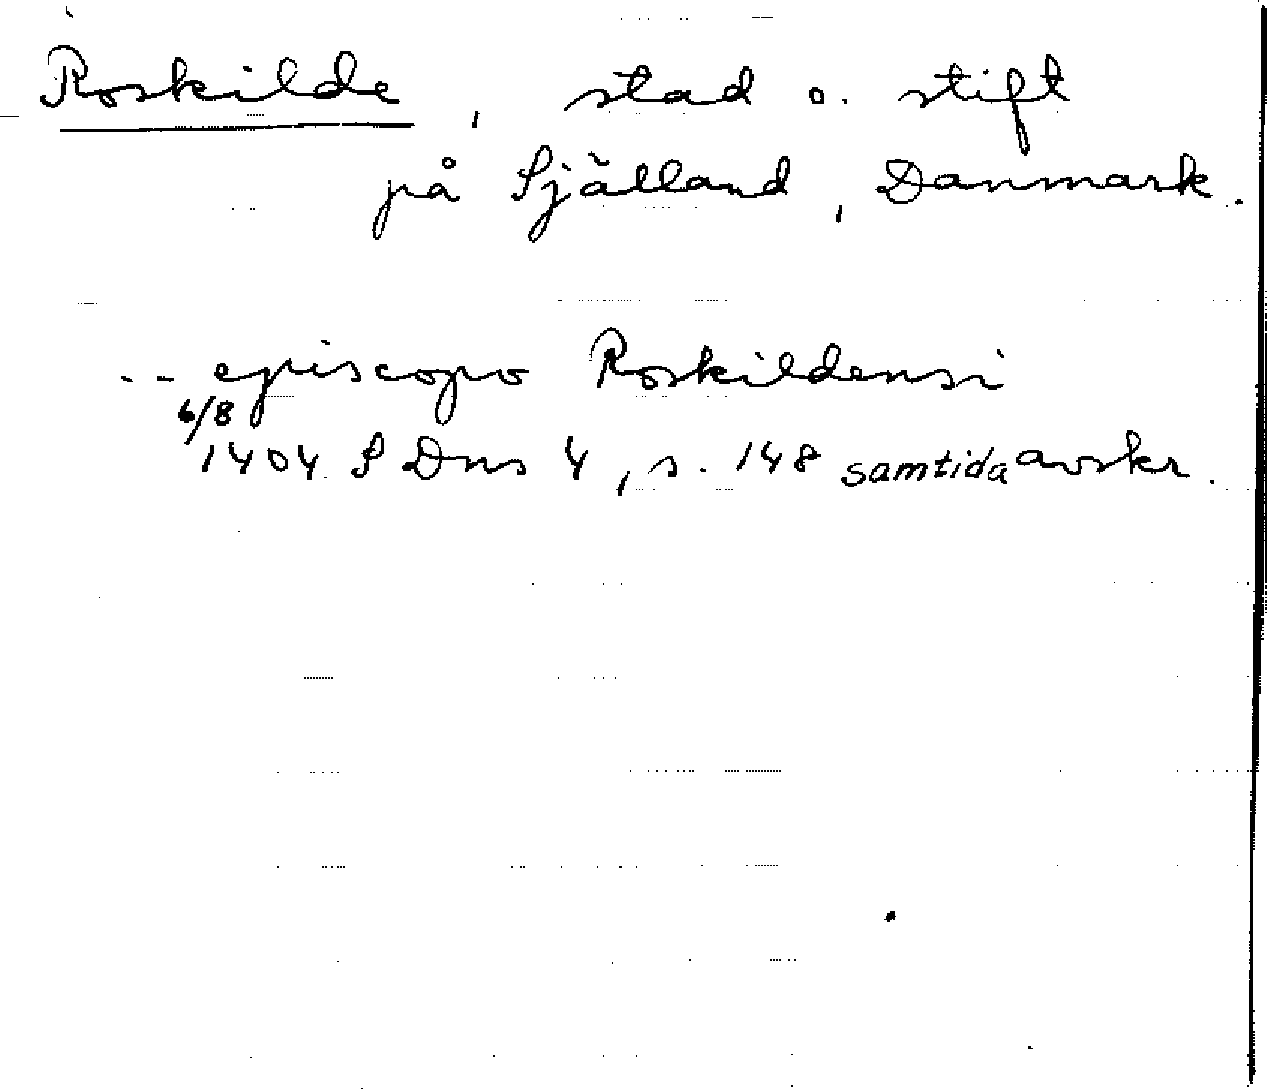 Roskilde, stad o. stift
på Själland, Danmark.
-- episcopo Roskildensi
6/8
1404 SDns 4, s. 148 samtida avskr.